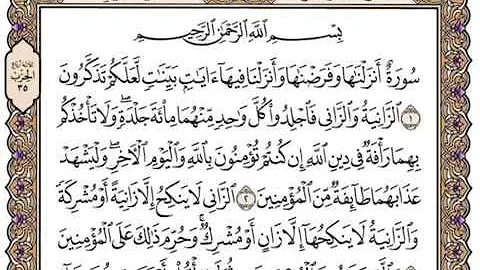 بِسْمِ ٱللَّهِ ٱلرَّحْمَٰنِ ٱلرَّحِيمِ
سُورَةٌ أَنزَلْنَٰهَا وَفَرَضْنَٰهَا وَأَنزَلْنَا فِيهَآ ءَايَٰتٍۭ بَيِّنَٰتٍ لَّعَلَّكُمْ تَذَكَّرُونَ
١ ٱلزَّانِيَةُ وَٱلزَّانِى فَٱجْلِدُوا۟ كُلَّ وَٰحِدٍ مِّنْهُمَا مِا۟ئَةَ جَلْدَةٍ ۖ وَلَا تَأْخُذْكُم
بِهِمَا رَأْفَةٌ فِى دِينِ ٱللَّهِ إِن كُنتُمْ تُؤْمِنُونَ بِٱللَّهِ وَٱلْيَوْمِ ٱلْءَاخِرِ ۖ وَلْيَشْهَدْ
عَذَابَهُمَا طَآئِفَةٌ مِّنَ ٱلْمُؤْمِنِينَ ٢ ٱلزَّانِى لَا يَنكِحُ إِلَّا زَانِيَةً أَوْ مُشْرِكَةً
وَٱلزَّانِيَةُ لَا يَنكِحُهَآ إِلَّا زَانٍ أَوْ مُشْرِكٌ ۚ وَحُرِّمَ ذَٰلِكَ عَلَى ٱلْمُؤْمِنِينَ
الحزب
٣٥